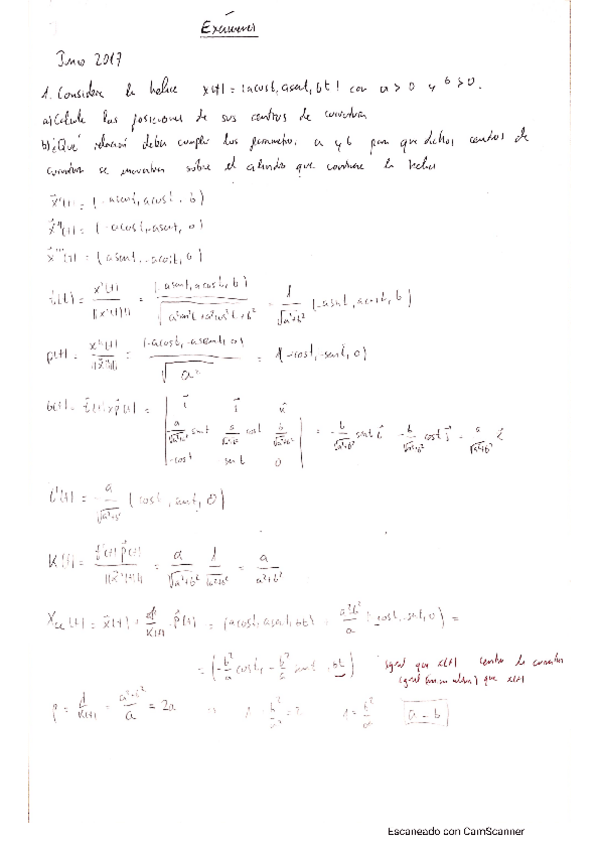 Exámenes
Junio 2017
1. Considera la hélice x(t) = (acost, asent, bt) con a > 0 y b > 0.
a) Calcule las posiciones de sus centros de curvatura
b) ¿Qué relación deben cumplir los parámetros a y b para que dichos centros de
curvatura se encuentren sobre el cilindro que contiene la hélice
x'(t) = (-asent, acost, b)
x''(t) = (-acost, -asent, 0)
x'''(t) = (asent, -acost, 0)
t(t) = x'(t) / ||x'(t)|| = (-asent, acost, b) / √(a²sen²t + a²cos²t + b²) = 1/√(a²+b²) (-asent, acost, b)
p(t) = x''(t) / ||x''|| = (-acost, -asent, 0) / √a² = (-cost, -sent, 0)
b(t) = t(t) x p(t) =
a/√(a²+b²) sent a/√(a²+b²) cost b/√(a²+b²)
-cost sent 0
t'(t) = a/√(a²+b²) (cost, sent, 0)
K(t) = t'(t) p(t) / ||x'(t)|| = a/√(a²+b²) 1/√(a²+b²) = a/(a²+b²)
= (-b²/a cost, -b²/a sent, bt) igual que x(t) centro de curvatura
que x(t)
ρ = 1/K(t) = (a²+b²)/a = 2a
1 = b²/a² a = b
Escaneado con CamScanner